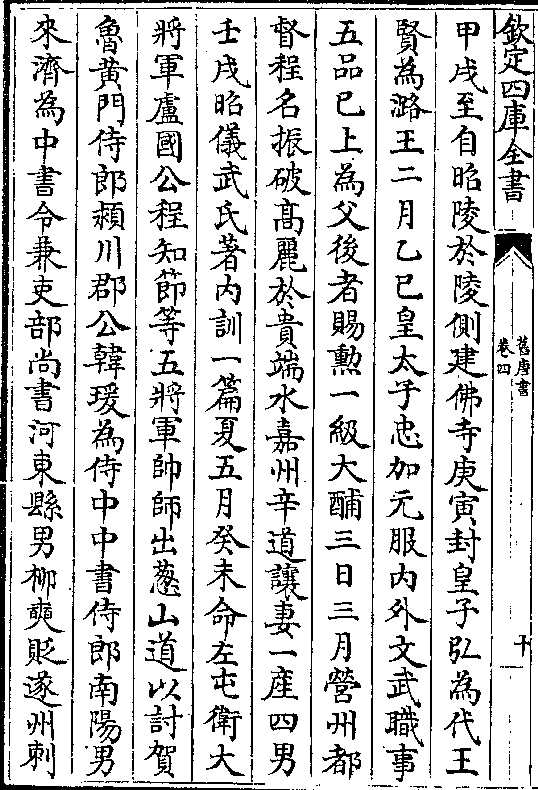 欽定四庫全書
舊唐書
卷四
十
甲戌至自昭陵於陵側建佛寺庚寅封皇子弘為代王
賢為潞王二月乙巳皇太子忠加元服内外文武職事
五品已上為父後者賜勲一級大酺三日三月營州都
督程名振破髙麗於貴端水嘉州辛道讓妻一產四男
壬戌昭儀武氏著内訓一篇夏五月癸未命左屯衛大
將軍盧國公程知節等五將軍帥師出葱山道以討賀
魯黄門侍郎潁川郡公韓瑗為侍中中書侍郎南陽男
來濟為中書令兼吏部尚書河東縣男柳奭貶遂州刺